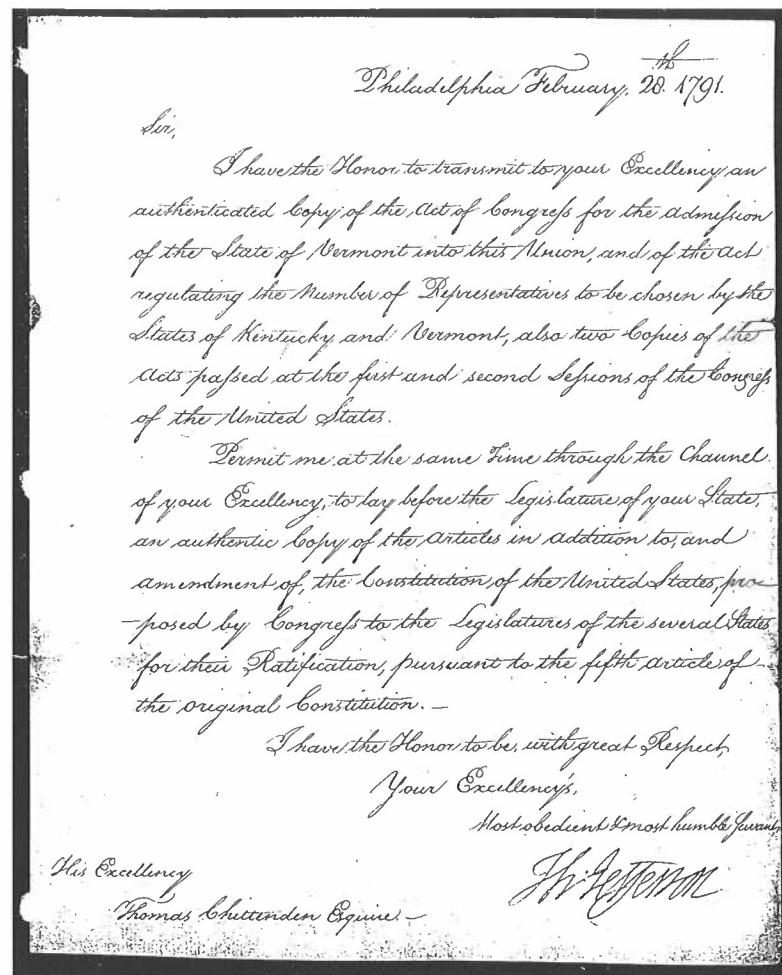 Philadelphia February. 28.th 1791.
Sir,
I have the Honor to transmit to your Excellency an
authenticated Copy of the Act of Congreſs for the admission
of the State of Vermont into this Union, and of the Act
regulating the Number of Representatives to be chosen by the
States of Kentucky and Vermont, also two Copies of the
Acts paſsed at the first and second Seſsions of the Congreſs
of the United States.
Permit me at the same Time through the Channel
of your Excellency, to lay before the Legislature of your State,
an authentic Copy of the Articles in addition to, and
amendment of, the Constitution, of the United States, pro
-posed by Congreſs to the Legislatures of the several States
for their Ratification, pursuant to the fifth article of
the original Constitution. —
I have the Honor to be, with great Respect,
Your Excellency's,
Most obedient & most humble Servant,
Th: Jefferson
His Excellency
Thomas Chittenden Esquire. —